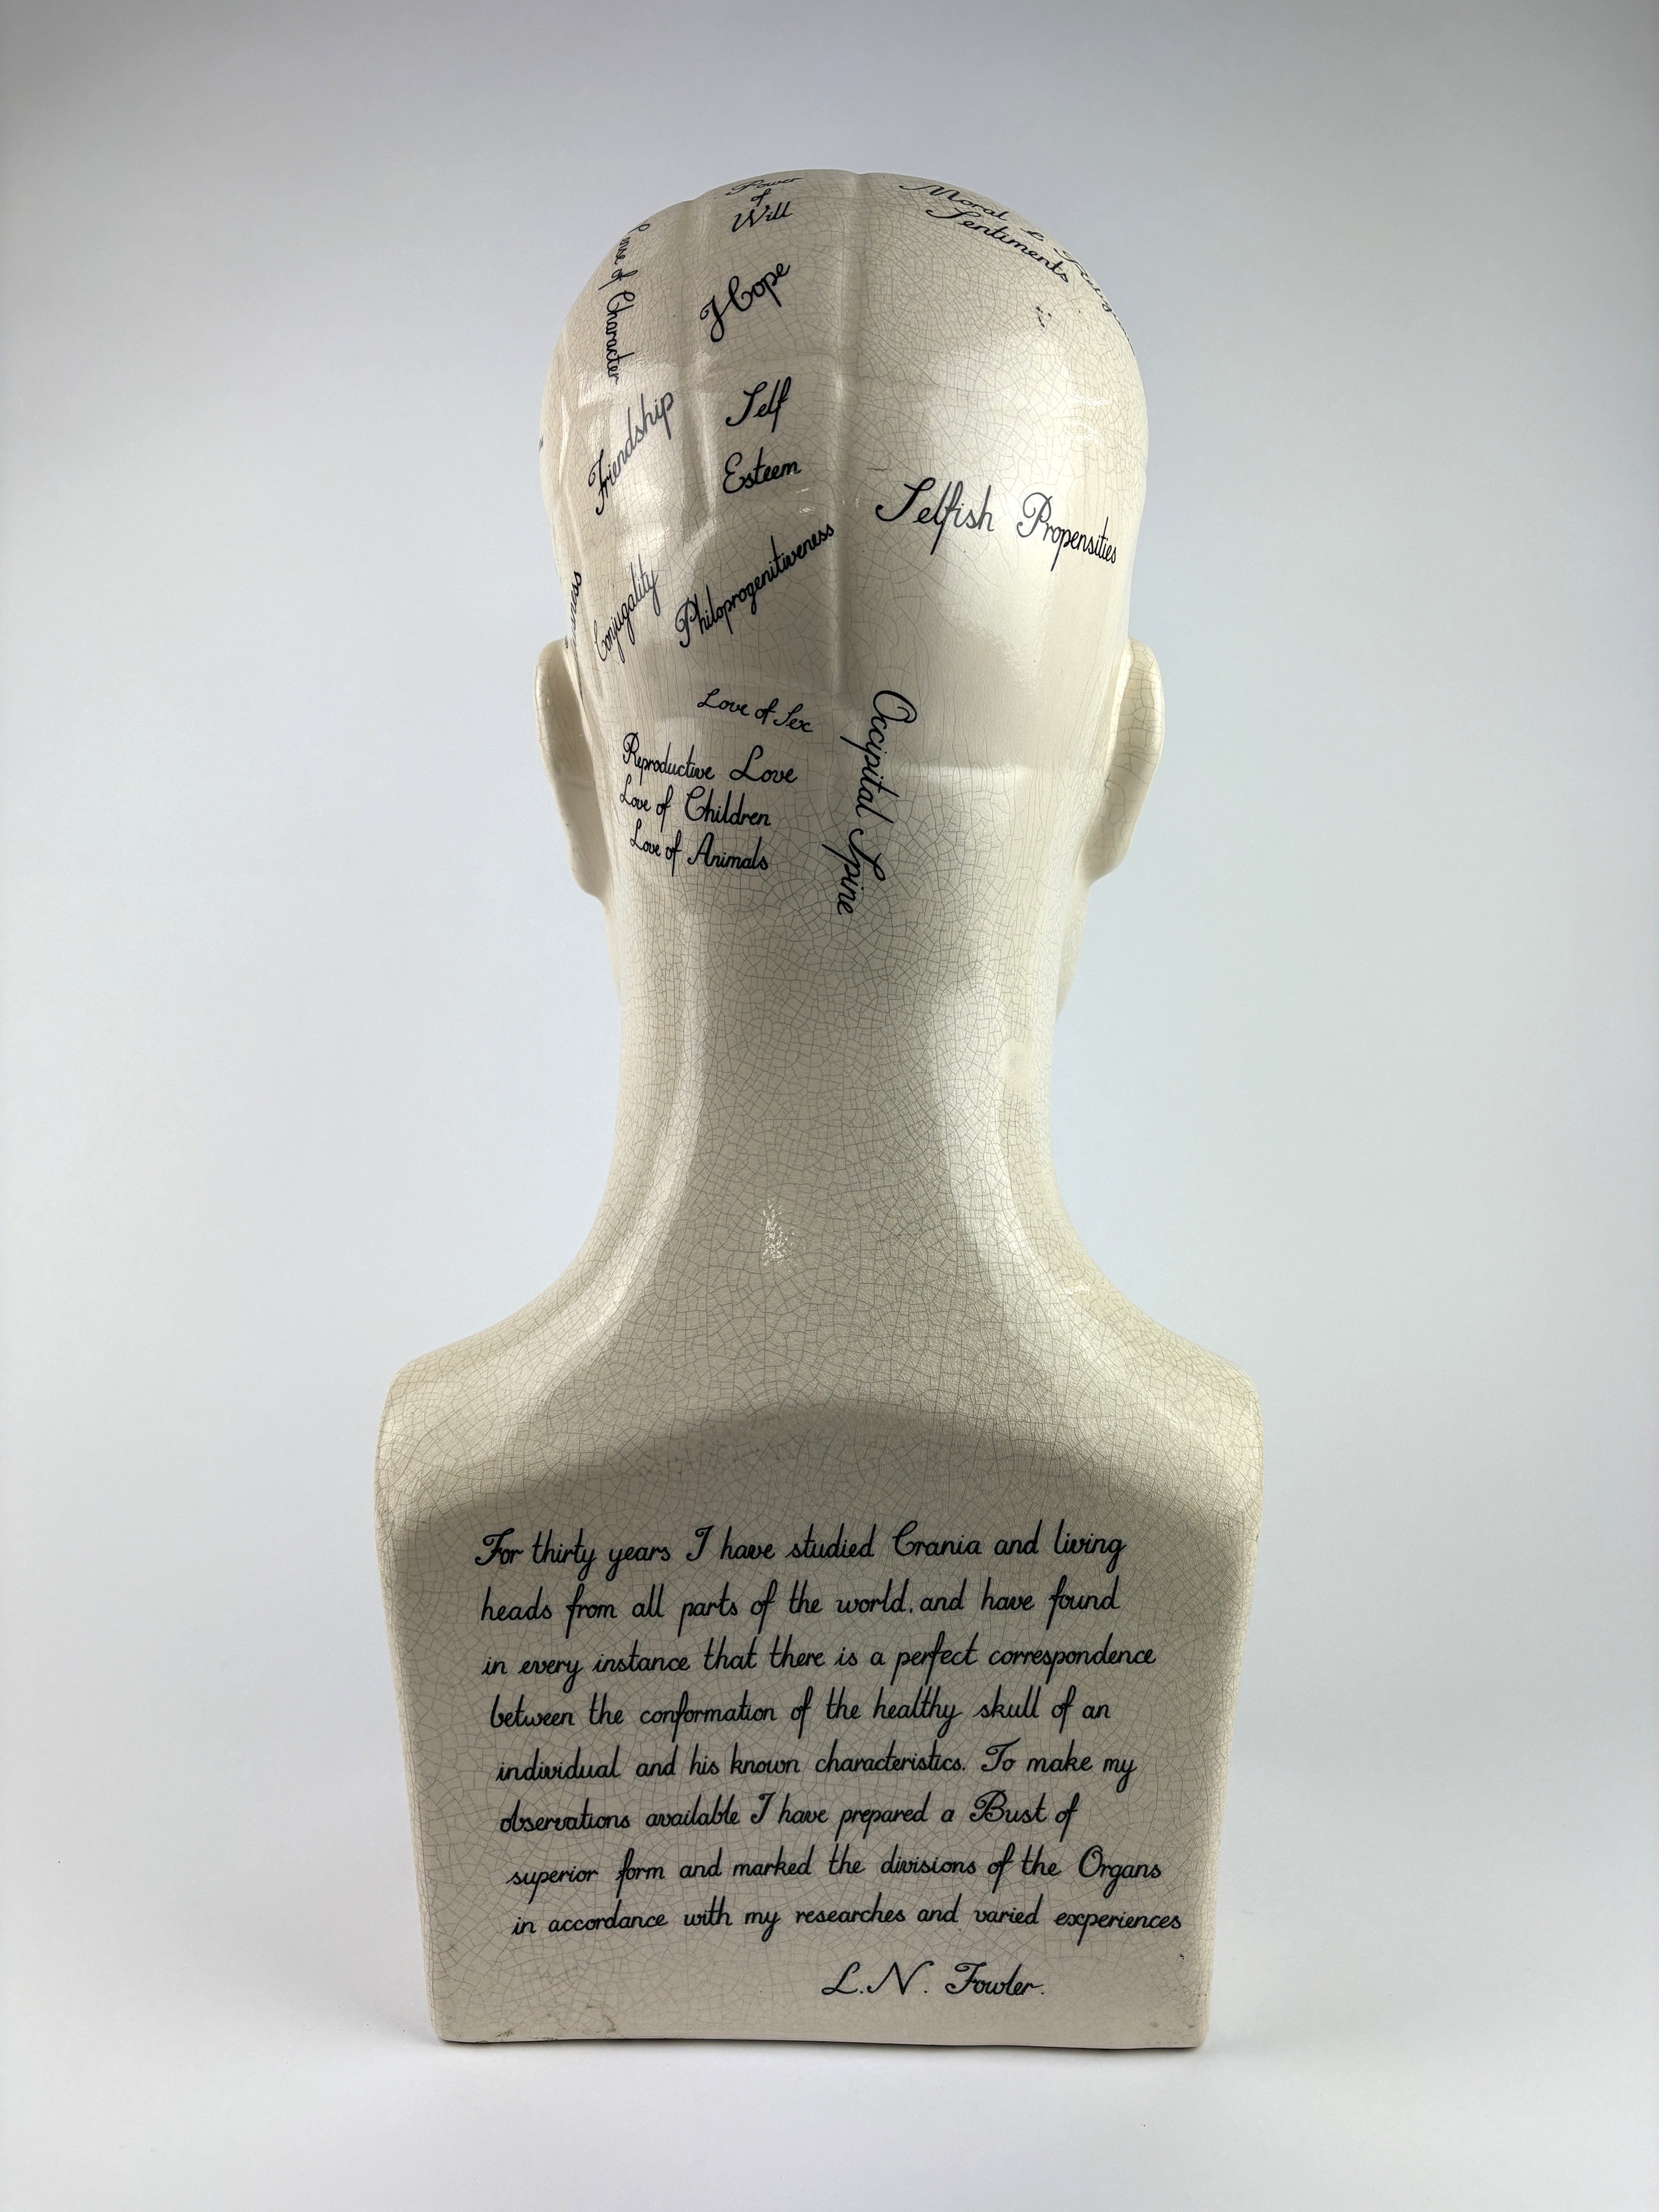 Power
of
Will
Moral &
Sentiments
of Character
Hope
Friendship
Self
Esteem
Selfish Propensities
Conjugality
Philoprogenitiveness
Love of Sex
Reproductive Love
Love of Children
Love of Animals
Occipital Spine
For thirty years I have studied Crania and living
heads from all parts of the world, and have found
in every instance that there is a perfect correspondence
between the conformation of the healthy skull of an
individual and his known characteristics. To make my
observations available I have prepared a Bust of
superior form and marked the divisions of the Organs
in accordance with my researches and varied experiences
L.N. Fowler.